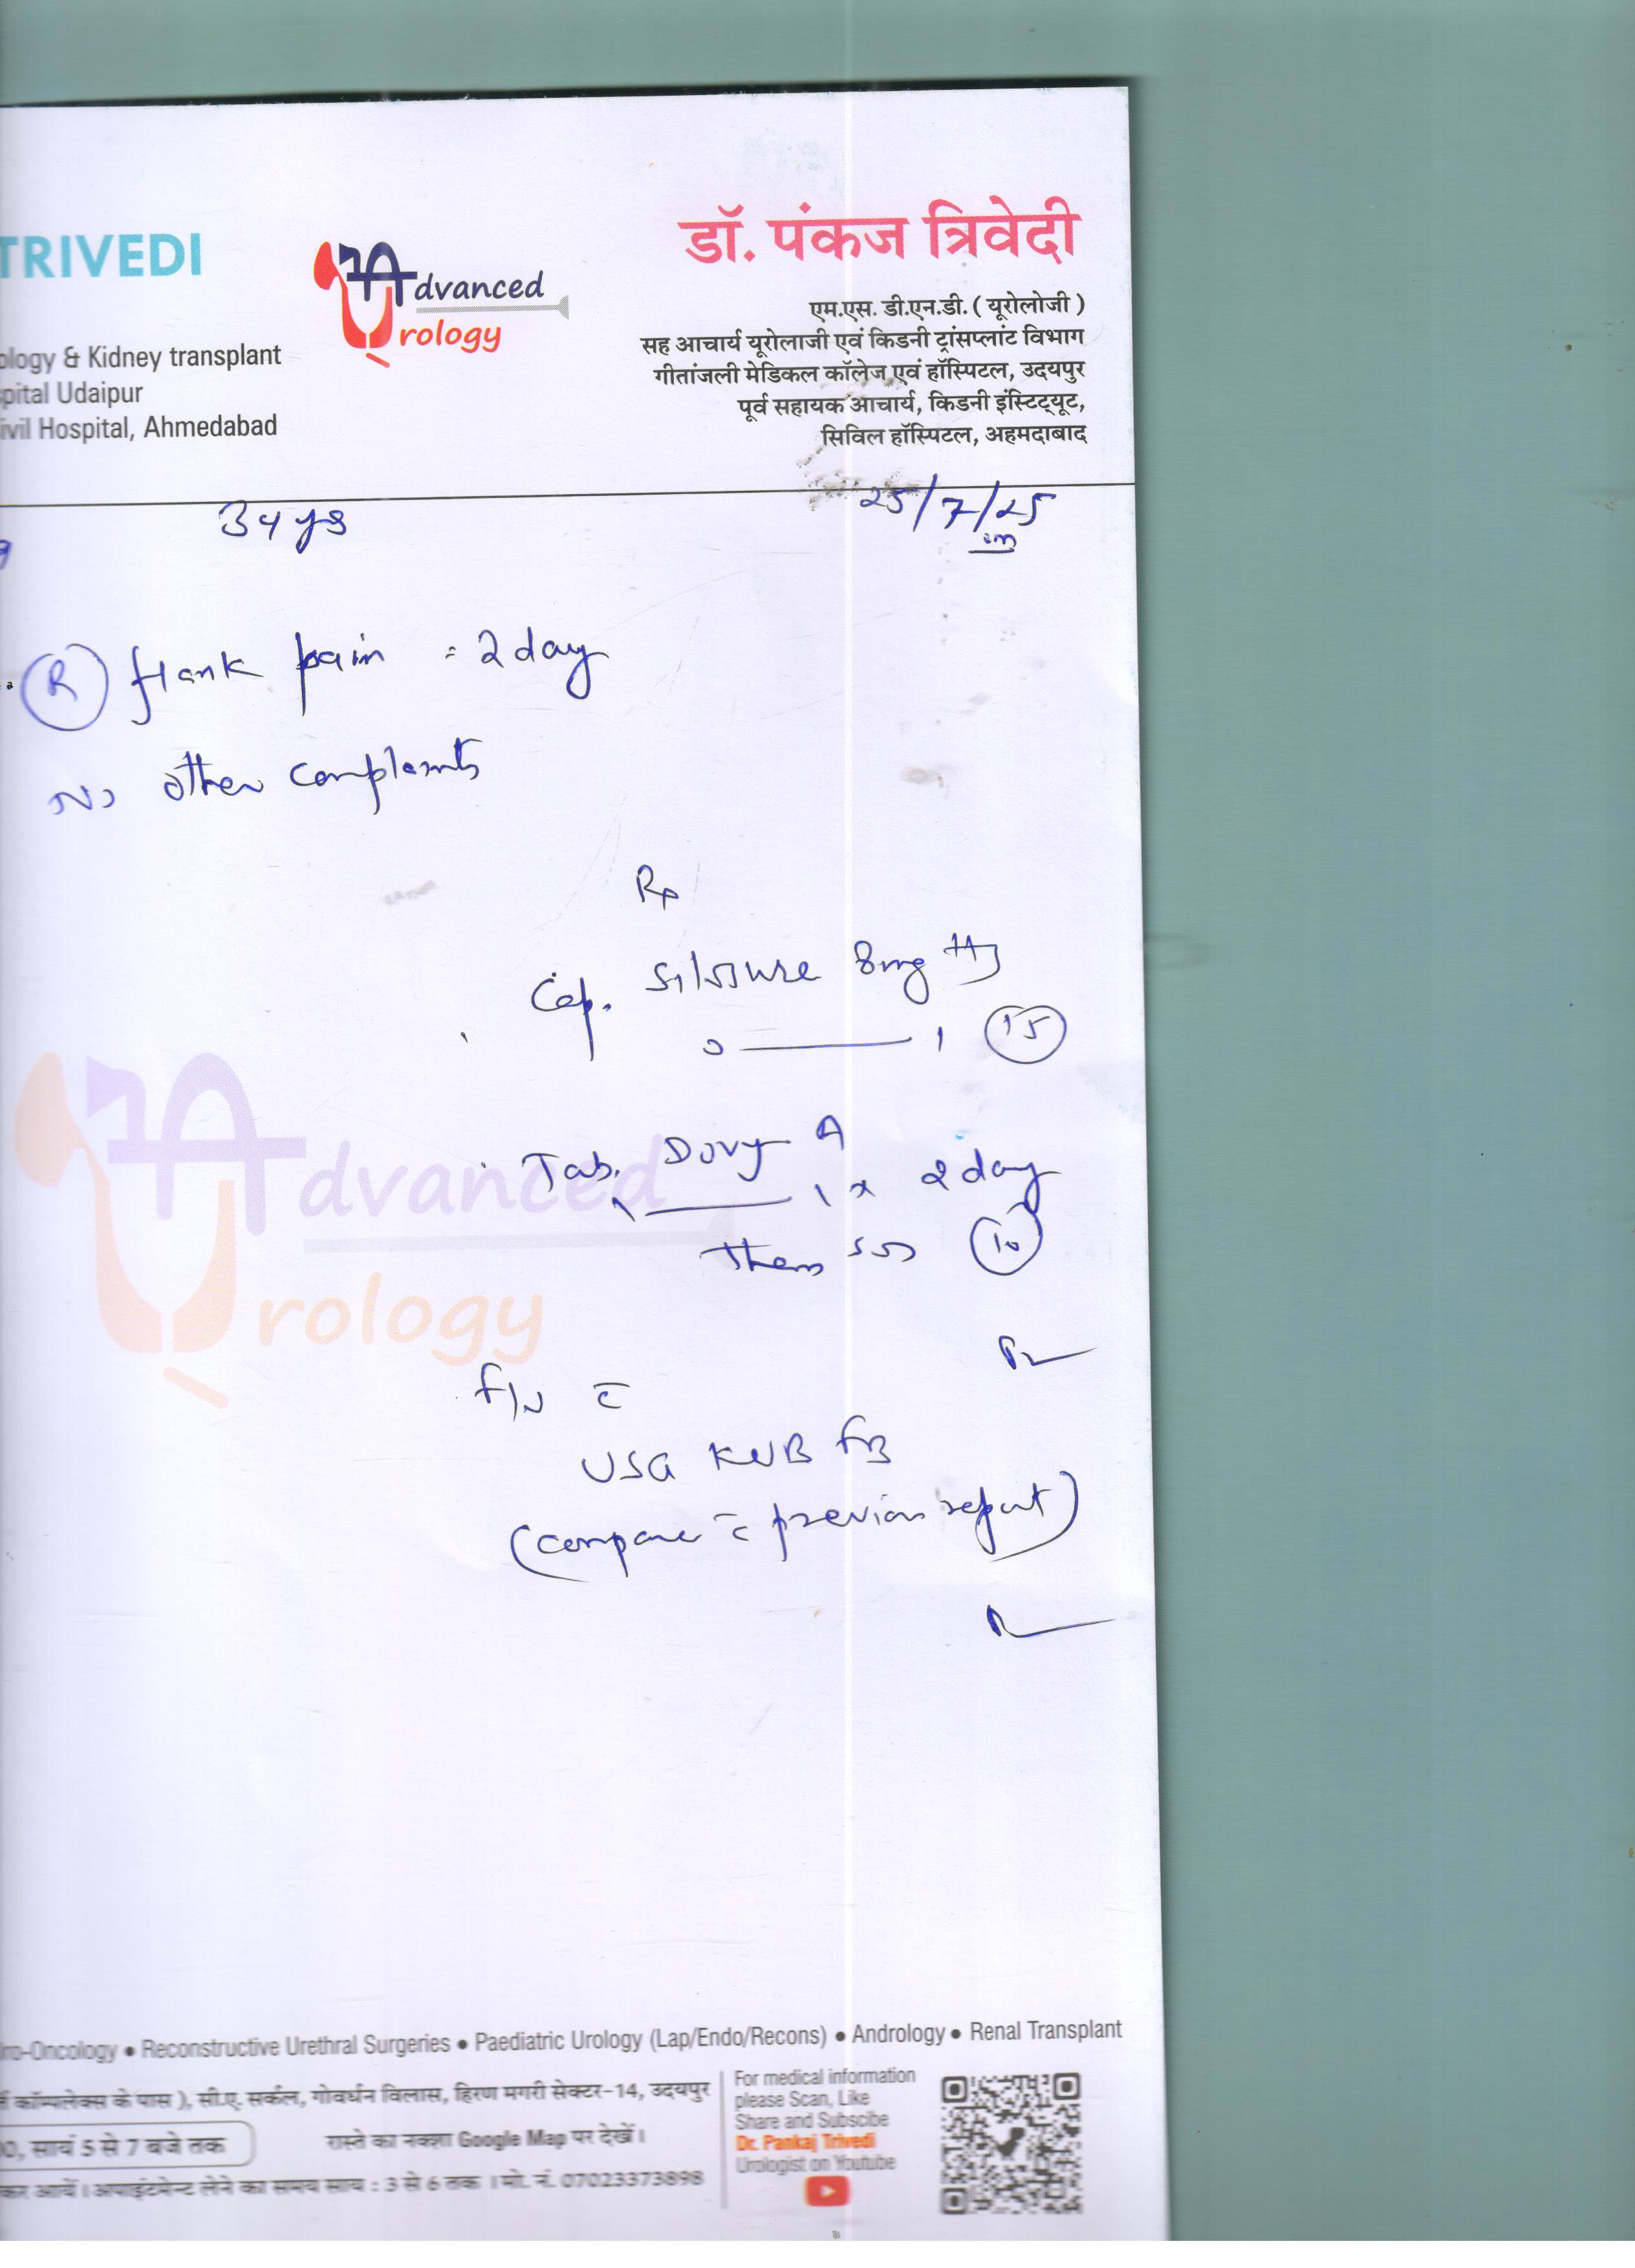 TRIVEDI
Advanced
Urology
डॉ. पंकज त्रिवेदी
एम.एस. डी.एन.डी. ( यूरोलोजी )
सह आचार्य यूरोलाजी एवं किडनी ट्रांसप्लांट विभाग
गीतांजली मेडिकल कॉलेज एवं हॉस्पिटल, उदयपुर
पूर्व सहायक आचार्य, किडनी इंस्टिट्यूट,
सिविल हॉस्पिटल, अहमदाबाद
ology & Kidney transplant
spital Udaipur
ivil Hospital, Ahmedabad
34 yrs
25/7/25
R flank pain = 2 day
No other complaints
Rp
Cap. Silsure 8mg
0 — 1 15
Tab. A
1 — 1 x 2 day
then sos 10
Advanced
Urology
USG KUB
(compare c̄ previous report)
ro-Oncology • Reconstructive Urethral Surgeries • Paediatric Urology (Lap/Endo/Recons) • Andrology • Renal Transplant
कॉम्पलेक्स के पास ), सी.ए. सर्कल, गोवर्धन विलास, हिरण मगरी सेक्टर-14, उदयपुर
0, सायं 5 से 7 बजे तक
रास्ते का नक्शा Google Map पर देखें।
कर आयें। अपाइंटमेन्ट लेने का समय सायं : 3 से 6 तक । मो. नं. 07023373898
For medical information
please Scan, Like
Share and Subscibe
Dr. Pankaj Trivedi
Urologist on Youtube